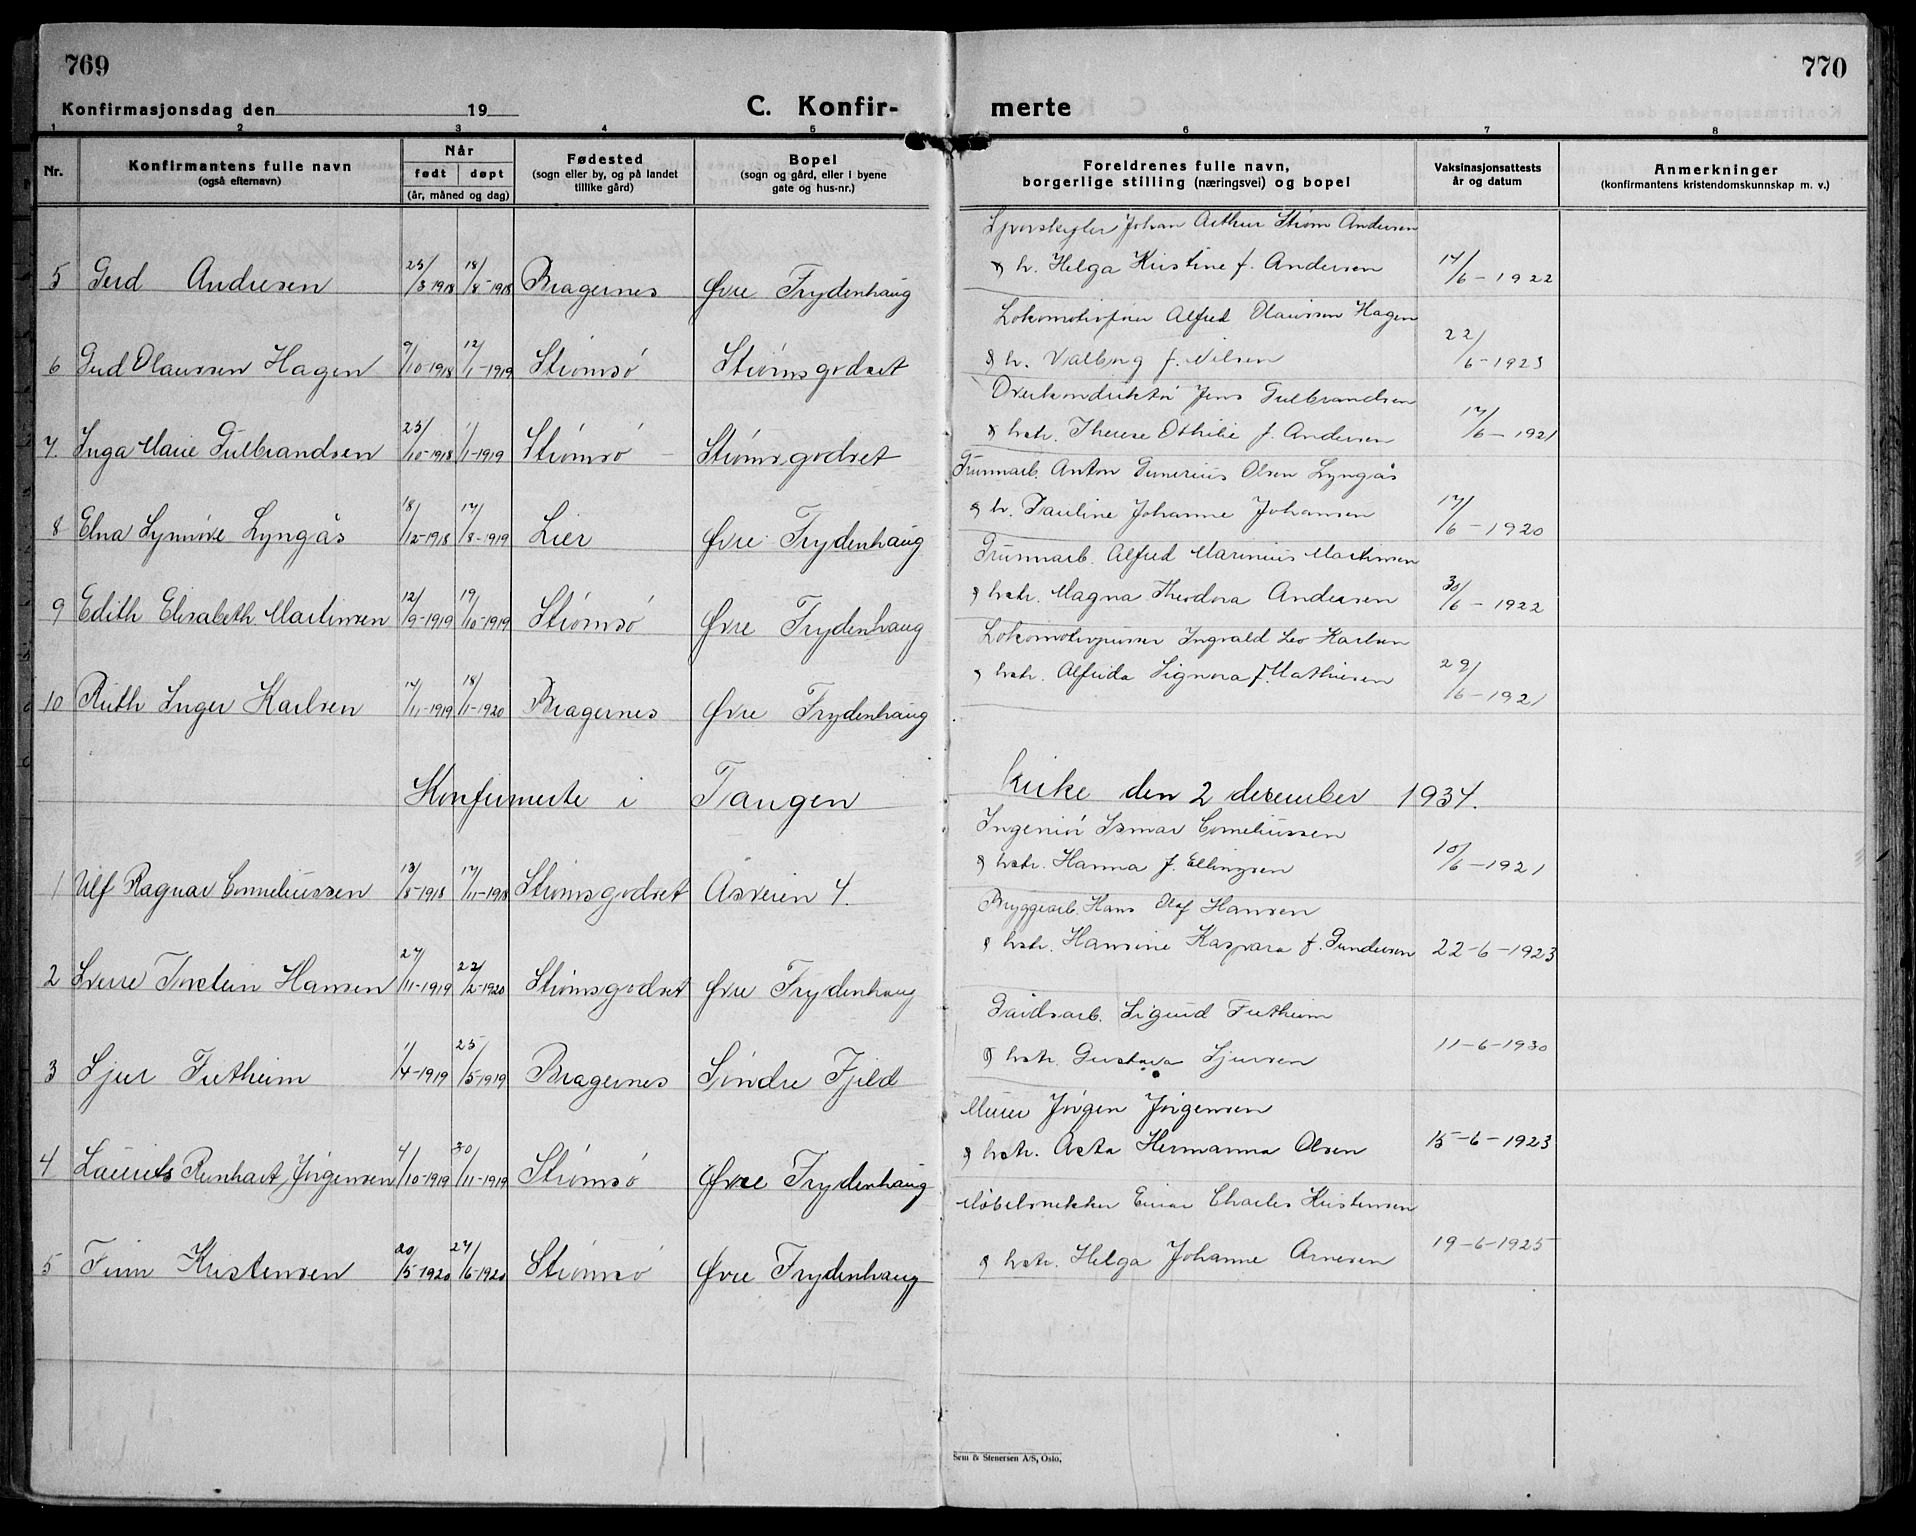 769
770
Konfirmasjonsdag den 19
C. Konfir-
merte
1 2 3 4 5 6 7 8
Nr.
Konfirmantens fulle navn
(også efternavn)
Når
født døpt
(år, måned og dag)
Fødested
(sogn eller by, og på landet
tillike gård)
Bopel
(sogn og gård, eller i byene
gate og hus-nr.)
Foreldrenes fulle navn,
borgerlige stilling (næringsvei) og bopel
Vaksinasjonsattests
år og datum
Anmerkninger
(konfirmantens kristendomskunnskap m. v.)
Johan Arthur Strøm Andersen
5 Gerd Andresen 25/3-1918 18/8-1918 Bragernes Øvre Frydenhaug & h. Helga Kristine f. Andersen 14/6-1922
Lokomotivfører Alfred Olaussen Hagen
6 Gerd Olaussen Hagen 9/10-1918 12/1-1919 Strømsø Strømsgodset & h. Valborg f. Nilsen 22/6-1923
Overkonduktør Jens Gulbrandsen
7. Inga Marie Gulbrandsen 25/10-1918 1/1-1919 Strømsø Strømsgodset & hstr. Therese Othilie f. Andersen 17/6-1921
Grunnarb. Anton Gunerius Olsen Lyngås
8 Elna Synnøve Lyngås 18/12-1918 17/8-1919 Lier Øvre Frydenhaug & h. Pauline Johanne Johansen 17/6-1920
Grunnarb. Alfred Marinius Martinsen
9 Edith Elisabeth Martinsen 12/9-1919 19/10-1919 Strømsø Øvre Frydenhaug & hstr. Magna Theodora Andersen 30/6-1922
Lokomotivpusser Ingvald Leo Karlsen
10 Ruth Inger Karlsen 14/11-1919 18/1-1920 Bragernes Øvre Frydenhaug & hstr. Alfrida Signora f. Mathiesen 29/6-1921
Konfirmerte i Tangen kirke den 2 desember 1934.
Ingeniør Ismar Corneliussen
1 Ulf Ragnar Corneliussen 13/8-1918 17/11-1918 Strømsgodset Åsveien 4. & hstr. Hanna f. Ellingsen 10/6-1921
Bryggearb. Hans Olaf Hansen
2 Sverre Torstein Hansen 27/11-1919 22/2-1920 Strømsgodset Øvre Frydenhaug & hstr. Hansine Kaspara f. Gundersen 22-6-1923
Gårdsarb. Sigurd Fretheim
3 Sjur Fretheim 1/4-1919 25/5-1919 Bragernes Søndre Fjeld & hstr. Gustava Sjursen 11-6-1930
Murer Jørgen Jørgensen
4 Laurits Reinhart Jørgensen 4/10-1919 30/11-1919 Strømsø Øvre Frydenhaug & hstr. Asta Hermanna Olsen 15-6-1923
Møbelsnekker Einar Charles Kristensen
5 Finn Kristensen 20/5-1920 27/6-1920 Strømsø Øvre Frydenhaug & hstr. Helga Johanne Arnesen 19-6-1925
Sem & Stenersen A/S, Oslo.